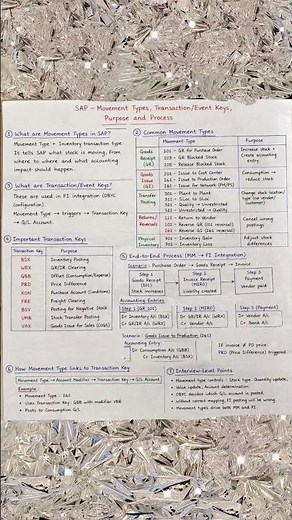 SAP - Movement Types, Transaction/Event Keys,
Purpose and Process
① What are Movement Types in SAP?
Movement Type = Inventory transaction type
It tells SAP what stock is moving, from
where to where and what accounting
impact should happen.
② Common Movement Types
Movement Type Purpose
Goods Receipt (GR)
101 - GR for Purchase Order
103 - GR Blocked Stock
105 - Release Blocked Stock
Increase stock +
Create accounting
entry
Goods Issue (GI)
201 - Issue to Cost Center
261 - Issue to Production Order
281 - Issue for Network (PM/PS)
Consumption →
reduce stock
Transfer Posting
301 - Plant to Plant
311 - SLoc to SLoc
321 - Quality → Unrestricted
Unrestricted → Quality
Change stock location/
type
Returns/
Reversals
102 - Reverse GR (101 reversal)
262 - Reverse GI (261 reversal)
Cancel wrong
postings
Physical
Inventory
701 - Inventory Gain
702 - Inventory Loss
Adjust stock
differences
③ What are Transaction/Event Keys?
These are used in FI integration (OBYC
configuration).
Movement type → triggers → Transaction key
→ G/L Account.
④ Important Transaction Keys
Transaction Key Purpose
BSX Inventory Posting
WRX GR/IR Clearing
GBB Offset (Consumption/Expense)
PRD Price Difference
KON
FRE Freight Clearing
BSV
UMB
VAX Goods Issue for Sales (COGS)
⑤ End-to-End Process (MM → FI Integration)
Scenario: Purchase Order → Goods Receipt → Invoice
Step 1
Goods Receipt
(101)
Stock increases
Step 2
Invoice Receipt
(MIRO)
Liability created
Step 3
Payment
Vendor paid
Accounting Entries
Step 1 (GR 101)
Dr Inventory A/c (BSX)
Cr GR/IR A/c (WRX)
Step 2 (MIRO)
Dr GR/IR A/c (WRX)
Cr Vendor A/c
Step 3 (Payment)
Dr Vendor A/c
Cr Bank A/c
Scenario: Goods Issue to Production (261)
Accounting Entry
Dr Consumption A/c (GBB)
Cr Inventory A/c (BSX)
If invoice ≠ PO price
PRD (Price Difference) triggered
⑥ How Movement Type links to Transaction Key
Movement Type → Account Modifier → Transaction Key → G/L Account
Example:
• Movement Type: 261
• Uses Transaction Key: GBB with modifier VBR
• Posts to Consumption G/L
⑦ Interview-Level Points
• Movement type controls: Stock type, Quantity update,
Value update, Account determination
• OBYC decides which G/L account is posted.
• Without correct mapping, FI posting will be wrong.
• Movement types drive both MM and FI.